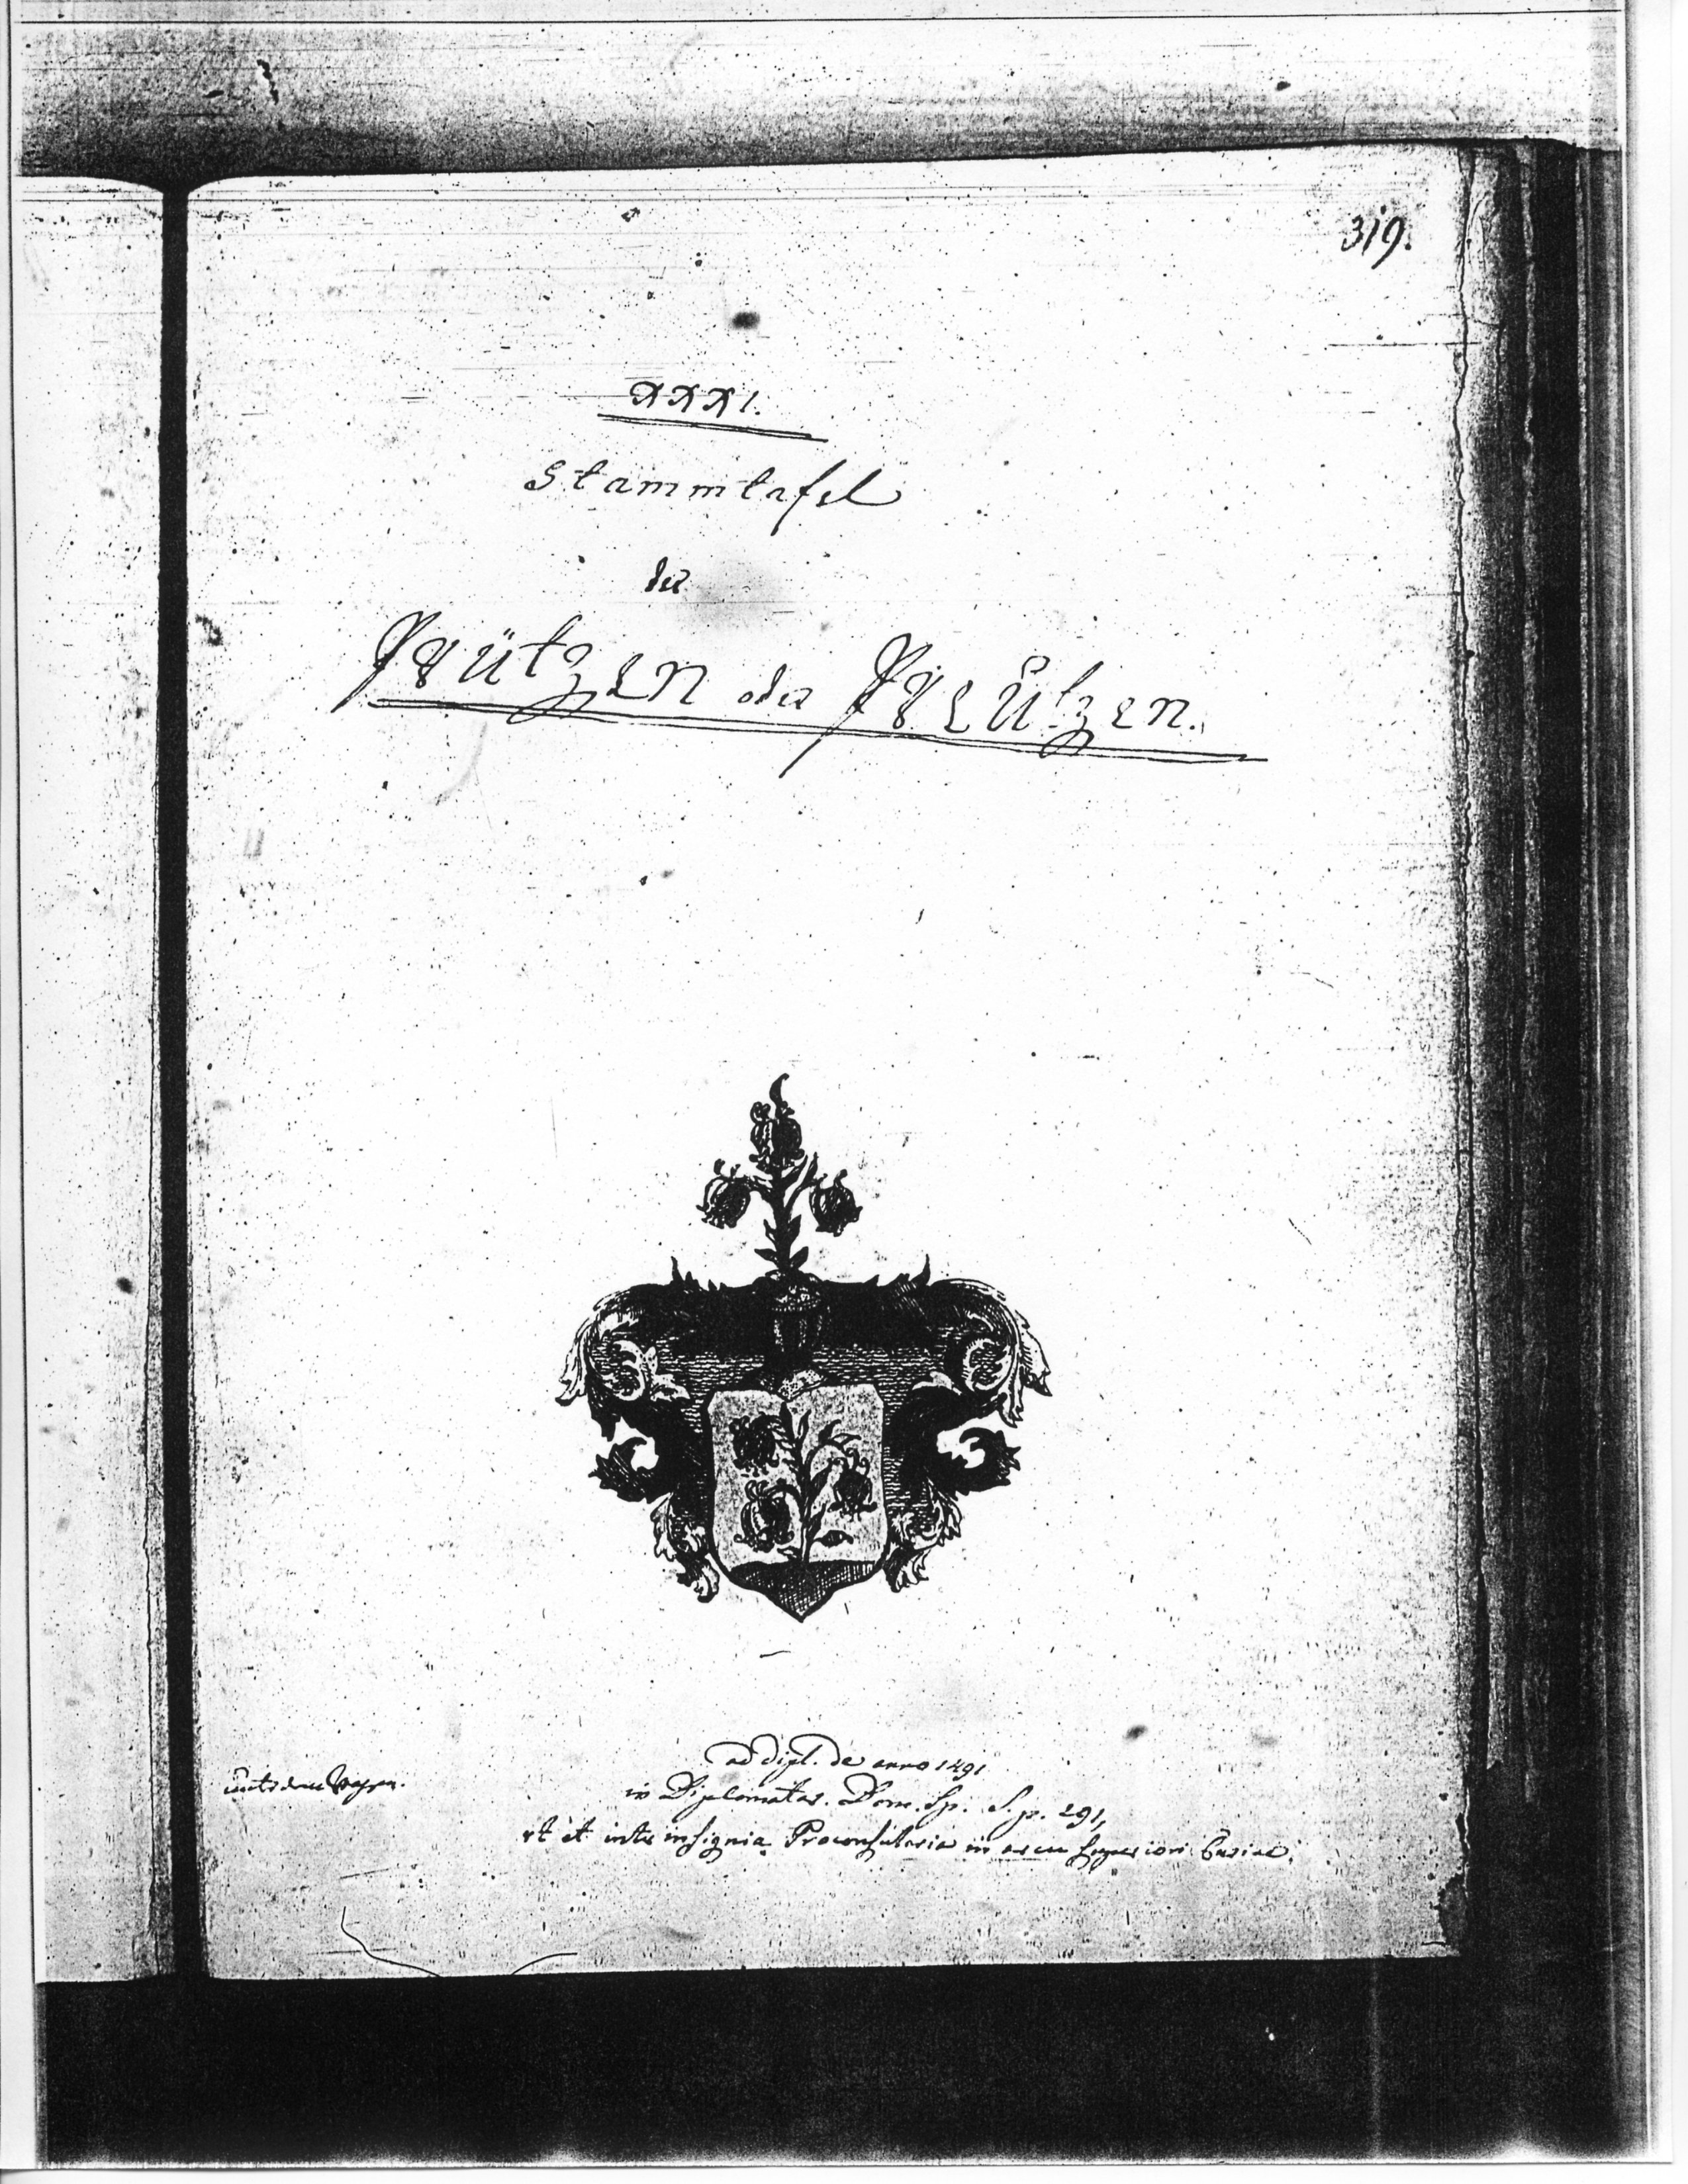 319.
XXXI.
Stammtafel
der
Prützen oder Preützen.
ad dipl. de anno 1491
in Diplomatar. Dom. Sp. S. p. 291,
ut et inter insignia Proconsularia in arcu superiori Curiae.